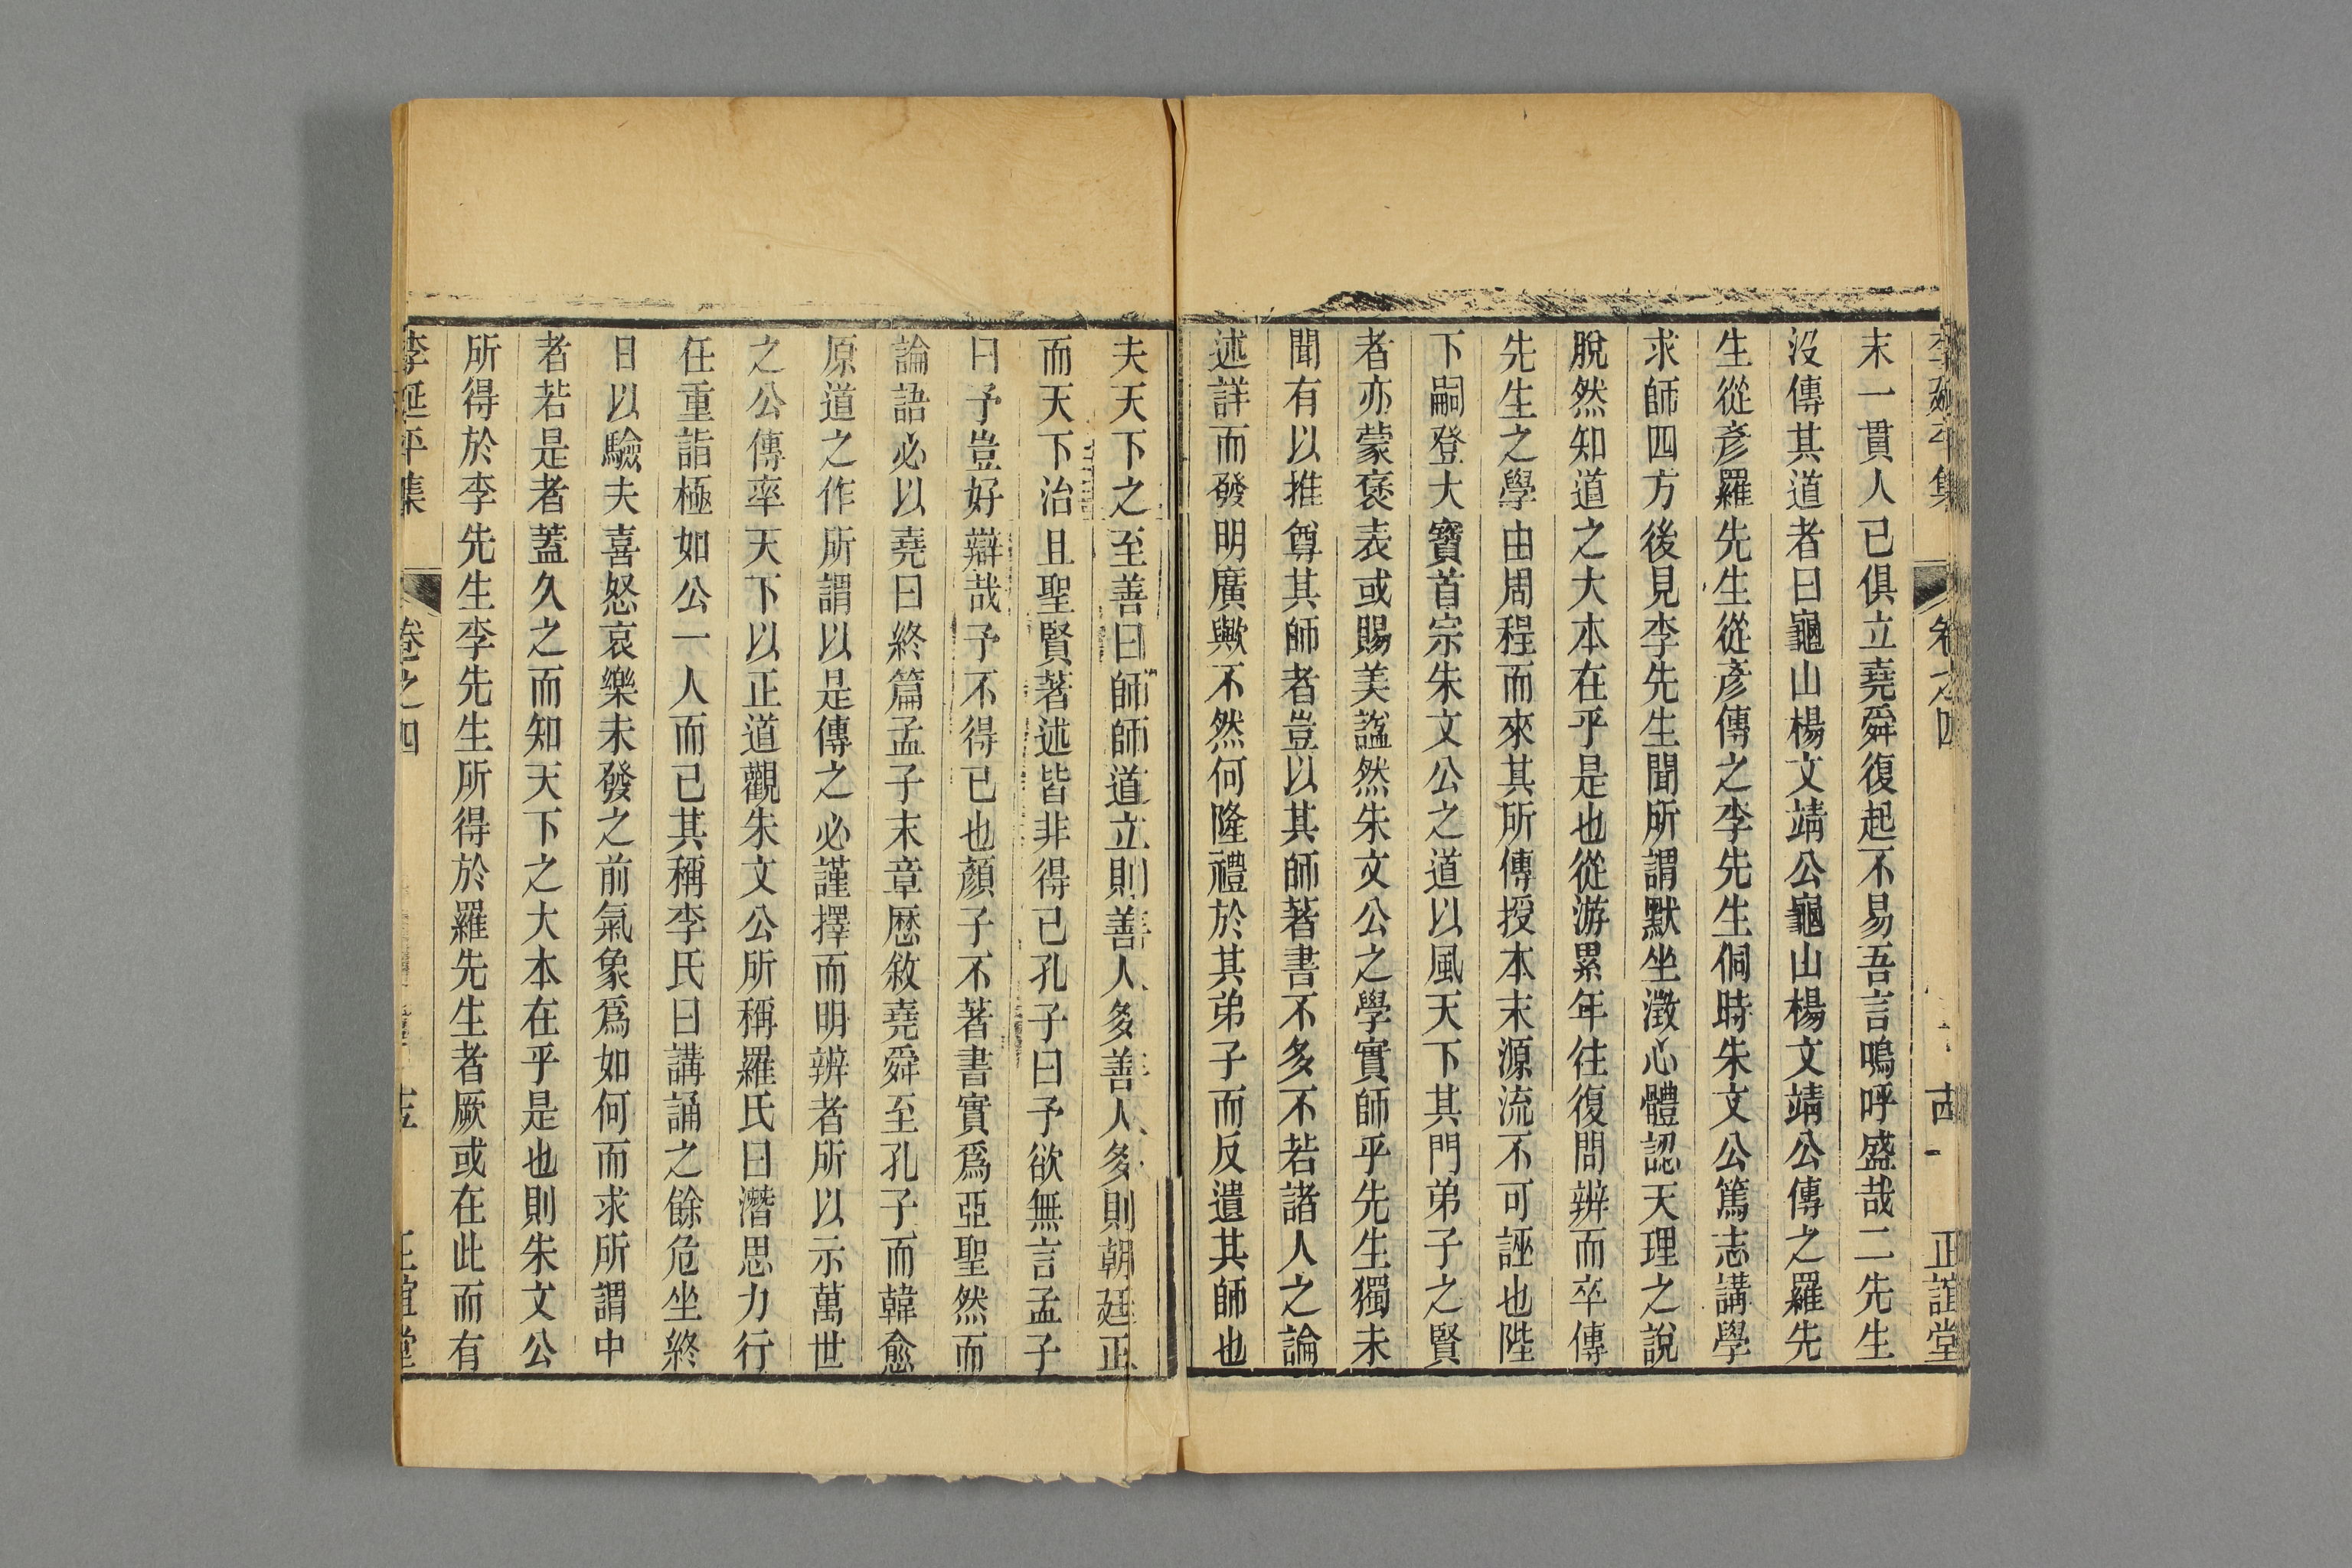 李延平集 卷之四 古 正誼堂
末一貫人已俱立堯舜復起不易吾言嗚呼盛哉二先生
沒傳其道者曰龜山楊文靖公龜山楊文靖公傳之羅先
生從彥羅先生從彥傳之李先生侗時朱文公篤志講學
求師四方後見李先生聞所謂默坐澂心體認天理之說
脫然知道之大本在乎是也從游累年往復問辨而卒傳
先生之學由周程而來其所傳授本末源流不可誣也陛
下嗣登大寶首宗朱文公之道以風天下其門弟子之賢
者亦蒙褒表或賜美諡然朱文公之學實師乎先生獨未
聞有以推尊其師者豈以其師著書不多不若諸人之論
述詳而發明廣歟不然何隆禮於其弟子而反遺其師也
夫天下之至善曰師師道立則善人多善人多則朝廷正
而天下治且聖賢著述皆非得已孔子曰予欲無言孟子
曰予豈好辯哉予不得已也顏子不著書實爲亞聖然而
論語必以堯曰終篇孟子末章歷敘堯舜至孔子而韓愈
原道之作所謂以是傳之必謹擇而明辨者所以示萬世
之公傳率天下以正道觀朱文公所稱羅氏曰潛思力行
任重詣極如公一人而已其稱李氏曰講誦之餘危坐終
日以驗夫喜怒哀樂未發之前氣象爲如何而求所謂中
者若是者蓋久之而知天下之大本在乎是也則朱文公
所得於李先生李先生所得於羅先生者厥或在此而有
李延平集 卷之四 正誼堂